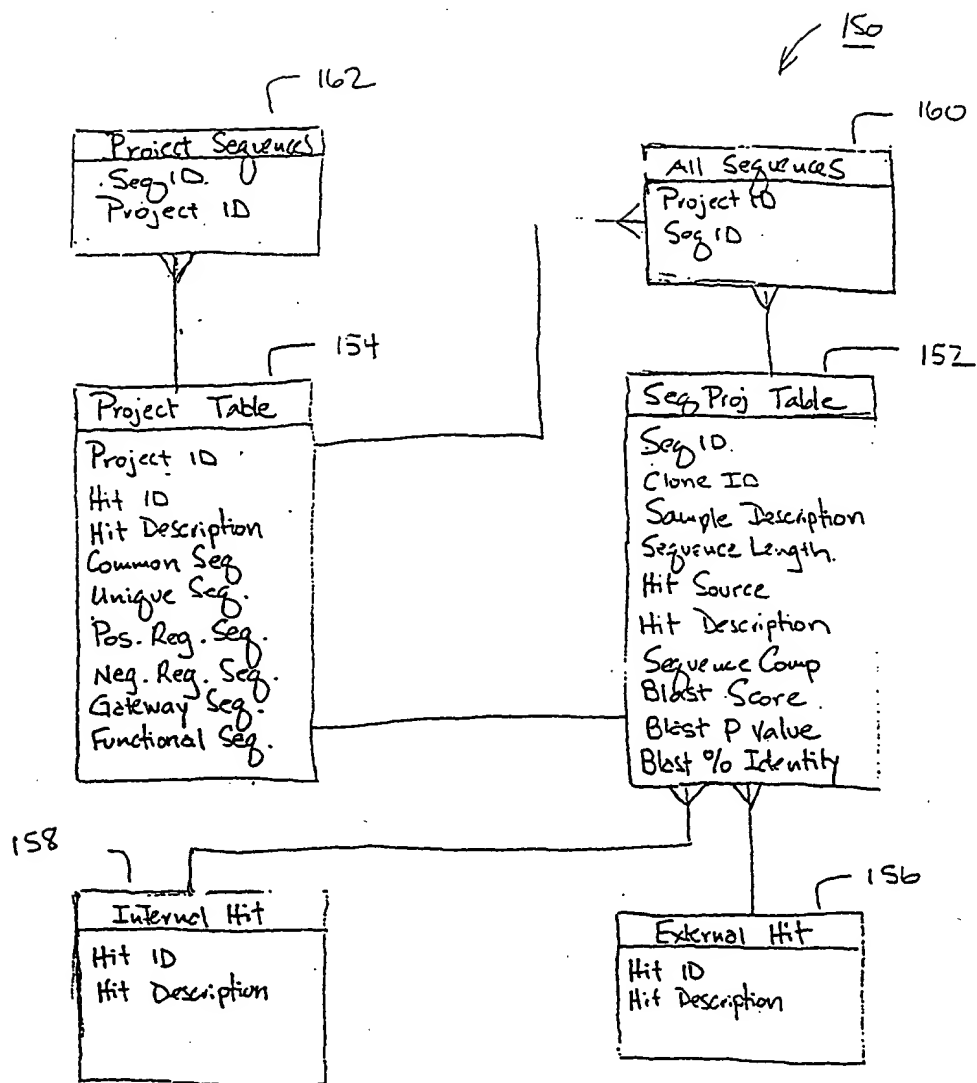 150
162
Project Sequences
Seq ID.
Project ID
160
All Sequences
Project ID
Seq ID
154
Project Table
Project ID
Hit ID
Hit Description
Common Seq
Unique Seq.
Pos. Reg. Seq.
Neg. Reg. Seq.
Gateway Seq.
Functional Seq.
152
Seq Proj Table
Seq ID.
Clone ID
Sample Description
Sequence Length.
Hit Source
Hit Description
Sequence Comp
Blast Score
Blast P Value
Blast % Identity
158
Internal Hit
Hit ID
Hit Description
156
External Hit
Hit ID
Hit Description